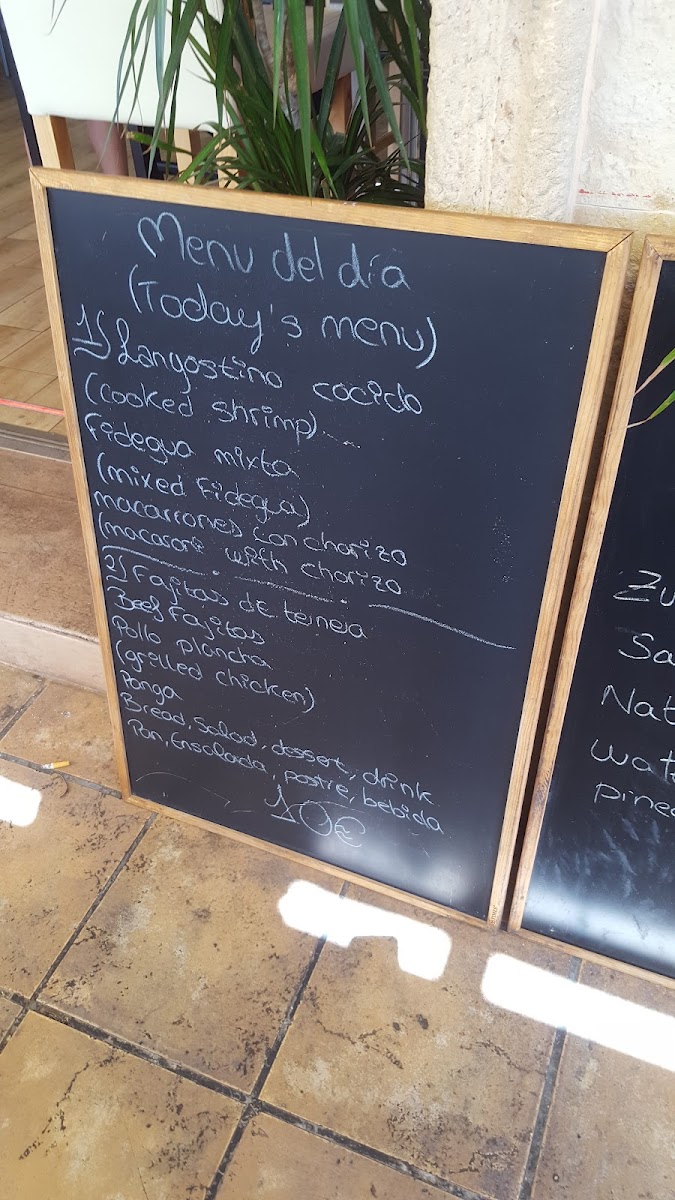 Menu del día
(Today's menu)
1) Langostino cocido
(cooked shrimp)...
Fidegua mixta
(mixed Fidegua)
macarrones con chorizo
(macaroni with chorizo
2) Fajitas de ternera
Beef Fajitas
Pollo plancha
(grilled chicken)
Panga
Bread, Salad, desset, drink
Pan, Ensalada, postre, bebida
10€
Zu
Sa
Nat
wat
pinea